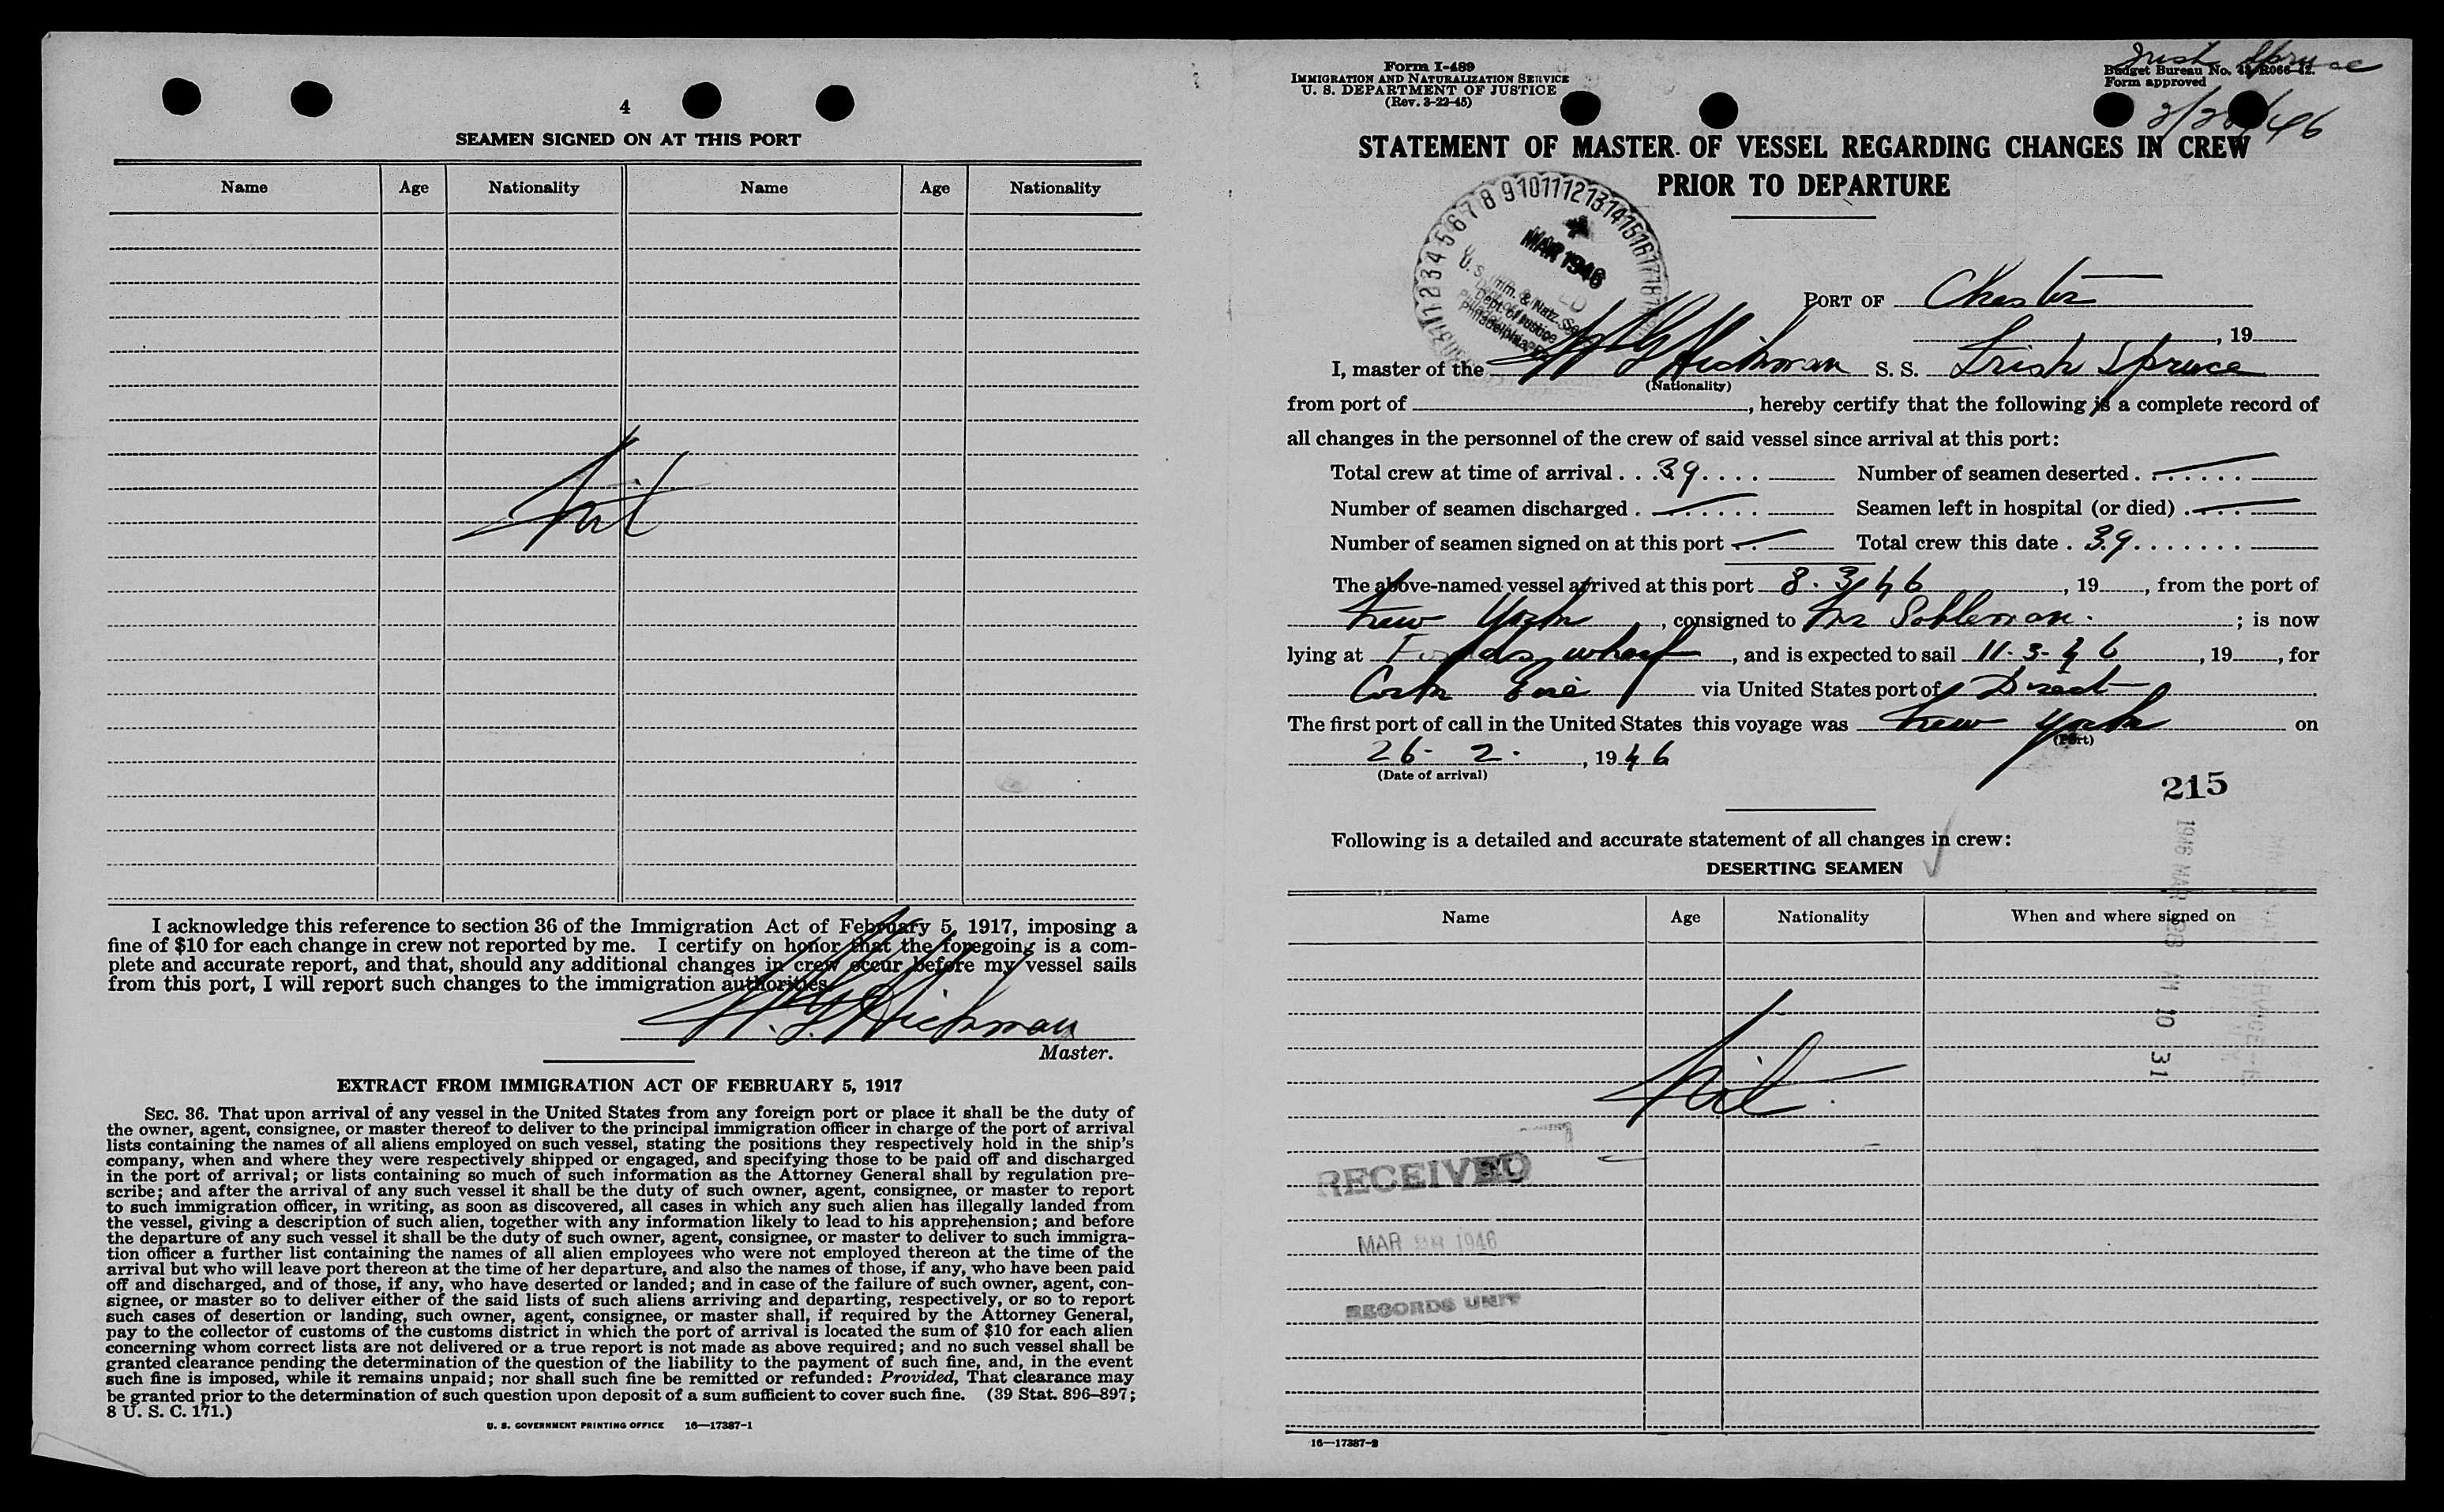 4
SEAMEN SIGNED ON AT THIS PORT
Name Age Nationality Name Age Nationality
Nil
I acknowledge this reference to section 36 of the Immigration Act of February 5, 1917, imposing a
fine of $10 for each change in crew not reported by me. I certify on honor that the foregoing is a com-
plete and accurate report, and that, should any additional changes in crew occur before my vessel sails
from this port, I will report such changes to the immigration authorities.
Hickman
Master.
EXTRACT FROM IMMIGRATION ACT OF FEBRUARY 5, 1917
SEC. 36. That upon arrival of any vessel in the United States from any foreign port or place it shall be the duty of
the owner, agent, consignee, or master thereof to deliver to the principal immigration officer in charge of the port of arrival
lists containing the names of all aliens employed on such vessel, stating the positions they respectively hold in the ship's
company, when and where they were respectively shipped or engaged, and specifying those to be paid off and discharged
in the port of arrival; or lists containing so much of such information as the Attorney General shall by regulation pre-
scribe; and after the arrival of any such vessel it shall be the duty of such owner, agent, consignee, or master to report
to such immigration officer, in writing, as soon as discovered, all cases in which any such alien has illegally landed from
the vessel, giving a description of such alien, together with any information likely to lead to his apprehension; and before
the departure of any such vessel it shall be the duty of such owner, agent, consignee, or master to deliver to such immigra-
tion officer a further list containing the names of all alien employees who were not employed thereon at the time of the
arrival but who will leave port thereon at the time of her departure, and also the names of those, if any, who have been paid
off and discharged, and of those, if any, who have deserted or landed; and in case of the failure of such owner, agent, con-
signee, or master so to deliver either of the said lists of such aliens arriving and departing, respectively, or so to report
such cases of desertion or landing, such owner, agent, consignee, or master shall, if required by the Attorney General,
pay to the collector of customs of the customs district in which the port of arrival is located the sum of $10 for each alien
concerning whom correct lists are not delivered or a true report is not made as above required; and no such vessel shall be
granted clearance pending the determination of the question of the liability to the payment of such fine, and, in the event
such fine is imposed, while it remains unpaid; nor shall such fine be remitted or refunded: Provided, That clearance may
be granted prior to the determination of such question upon deposit of a sum sufficient to cover such fine. (39 Stat. 896–897;
8 U. S. C. 171.)
U. S. GOVERNMENT PRINTING OFFICE 16—17387-1
Form I-489
IMMIGRATION AND NATURALIZATION SERVICE
U. S. DEPARTMENT OF JUSTICE
(Rev. 3-22-45)
Irish Spruce
Budget Bureau No.
Form approved
STATEMENT OF MASTER OF VESSEL REGARDING CHANGES IN CREW
PRIOR TO DEPARTURE
MAR 1946
U. S. Imm. & Natz. Ser.
Dept. of Justice
Philadelphia, Pa.
PORT OF Chester
, 19
I, master of the Hickman S. S. Irish Spruce
(Nationality)
from port of , hereby certify that the following is a complete record of
all changes in the personnel of the crew of said vessel since arrival at this port:
Total crew at time of arrival 39 Number of seamen deserted
Number of seamen discharged Seamen left in hospital (or died)
Number of seamen signed on at this port Total crew this date 39
The above-named vessel arrived at this port 8.3.46 , 19 , from the port of
New York , consigned to Mr ; is now
lying at Fords wharf , and is expected to sail 11-3-46 , 19 , for
Cork Eire via United States port of Direct
The first port of call in the United States this voyage was New York on
(Port)
26 - 2 - , 1946
(Date of arrival)
215
Following is a detailed and accurate statement of all changes in crew:
DESERTING SEAMEN
Name Age Nationality When and where signed on
1946 MAR 28 AM 10 31
Nil.
RECEIVED
MAR 28 1946
RECORDS UNIT
16—17387-2